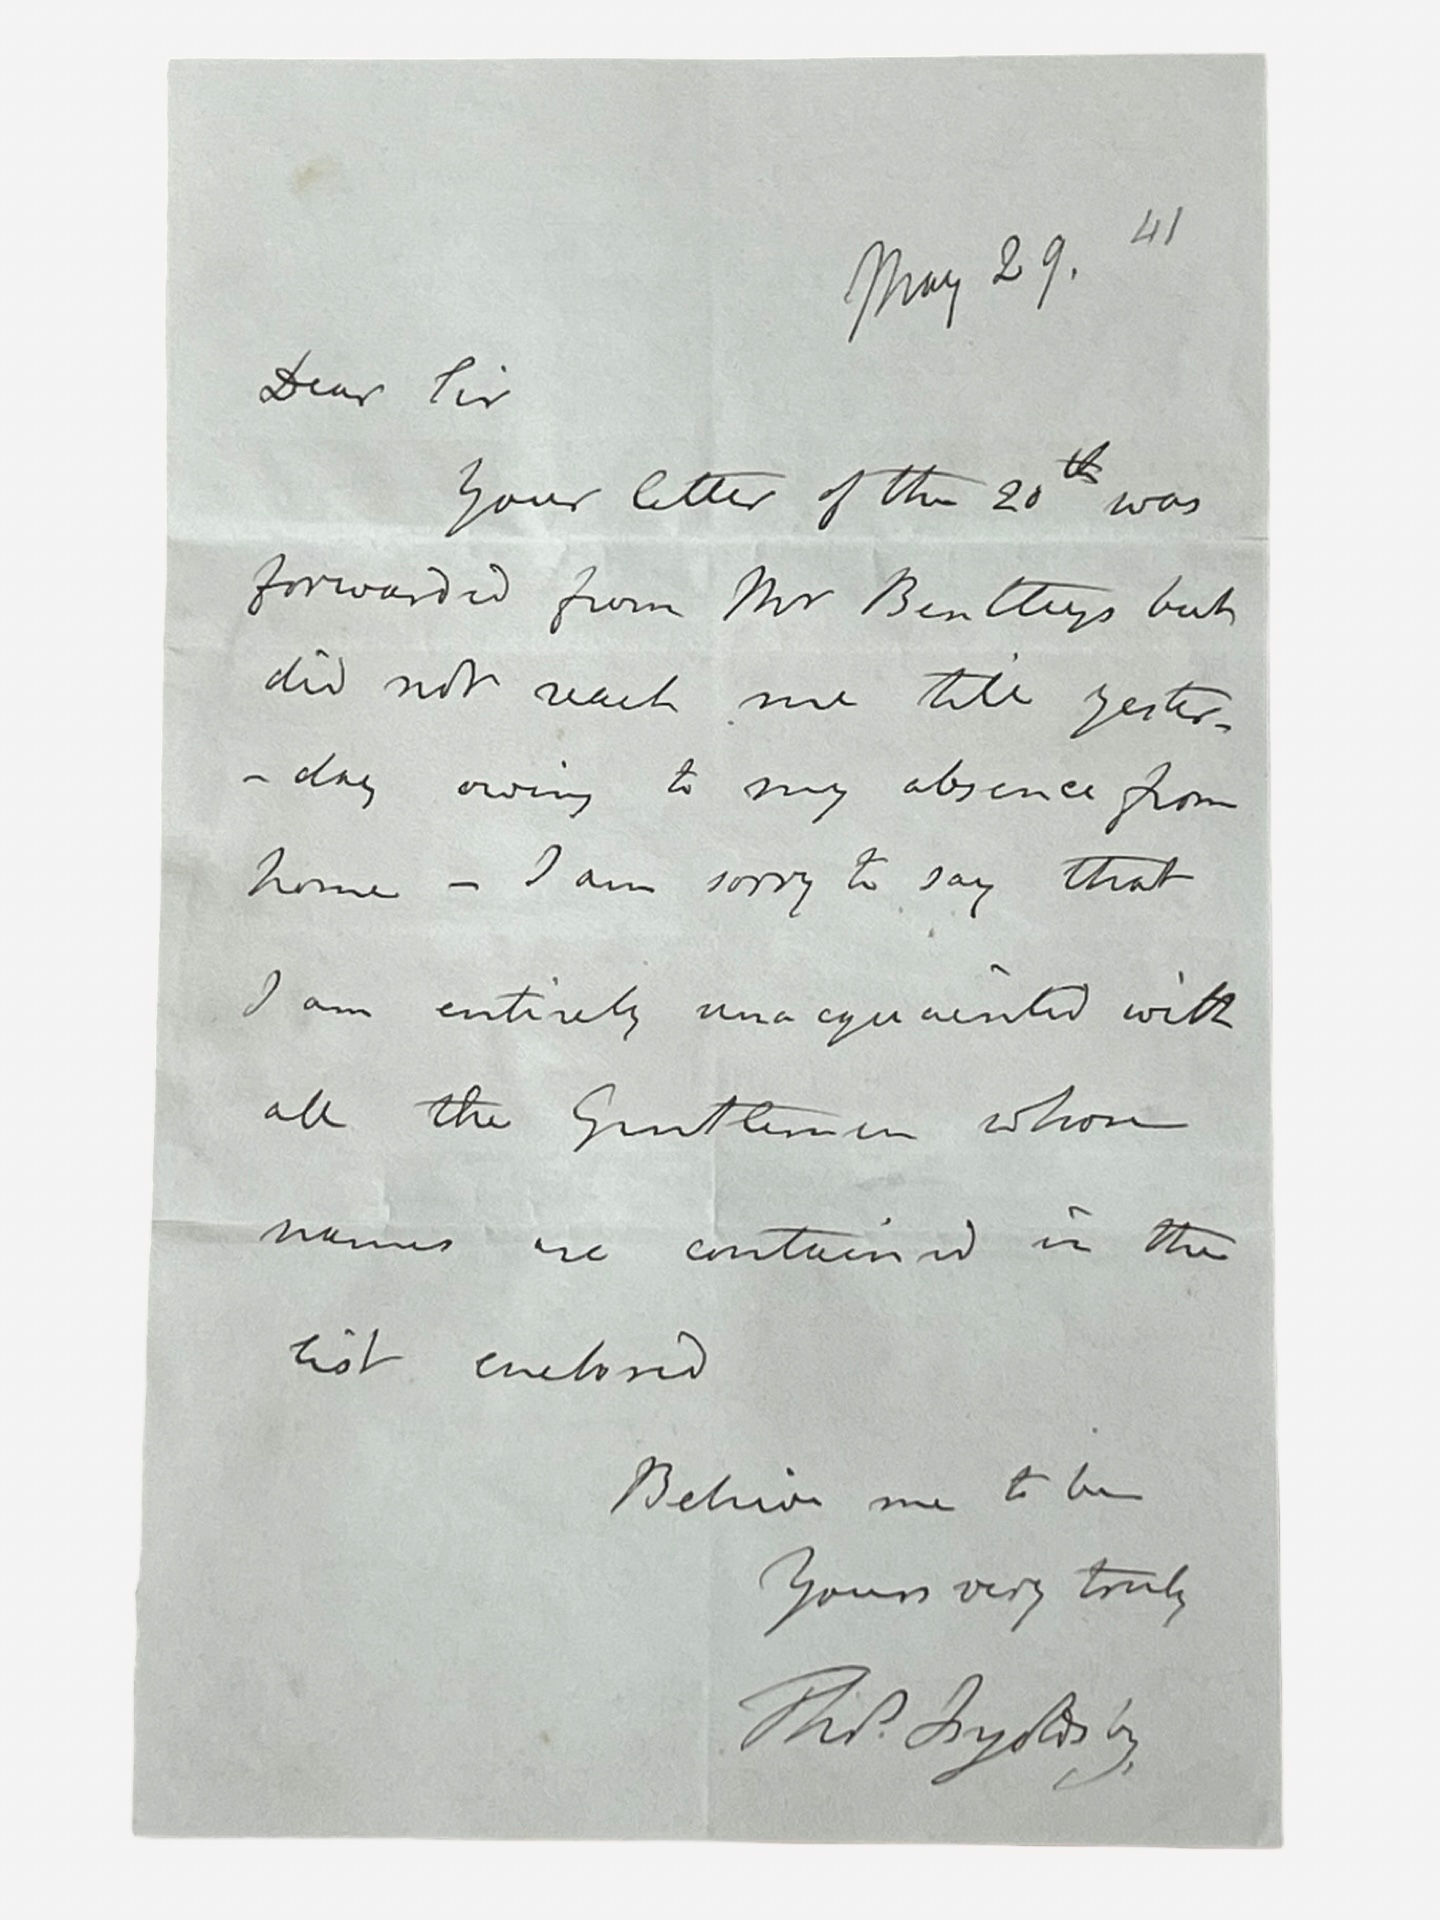 May 29. 41
Dear Sir
Your letter of the 20th was
forwarded from Mr Bentleys but
did not reach me till yester-
- day owing to my absence from
home - I am sorry to say that
I am entirely unacquainted with
all the Gentlemen whose
names are contained in the
list enclosed
Believe me to be
Yours very truly
Thos. Ingoldsby.